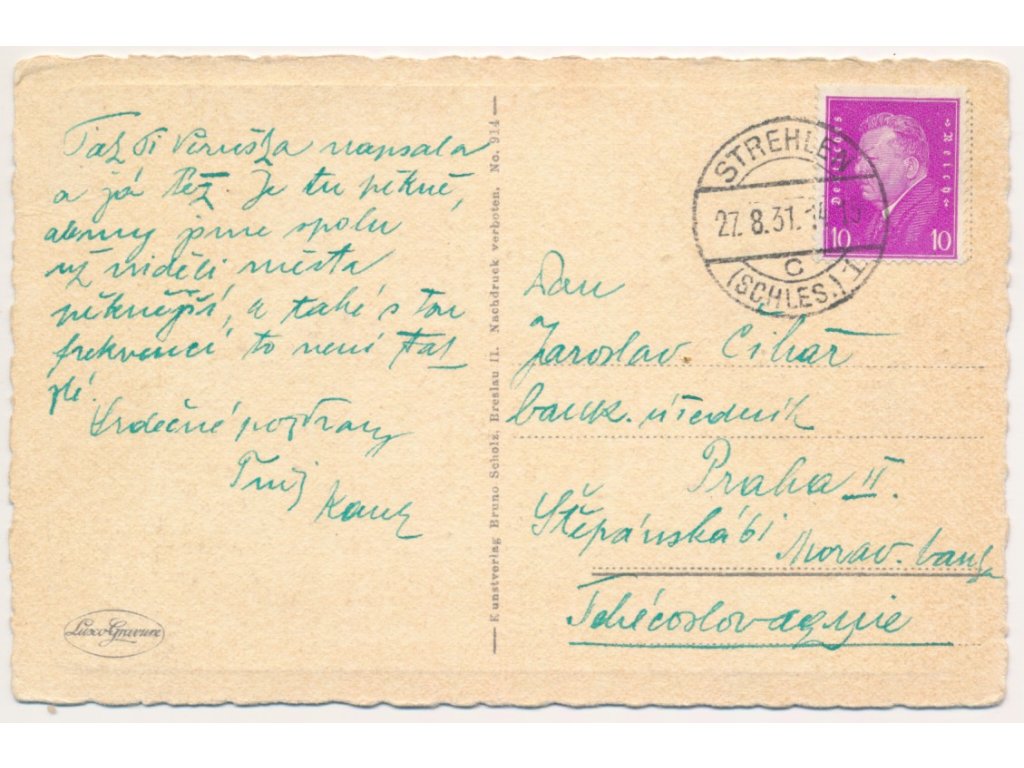 Tak Ti Veruška napsala
a já též. Je tu pěkně,
ale my jsme spolu
už viděli města
pěknější, a také s tou
frekvencí to není tak
zlé.
Srdečné pozdravy
Tvůj
Kunstverlag Bruno Scholz, Breslau II. Nachdruck verboten. No. 914
Luxo-Gravure
STREHLEN
27.8.31. 14-15
C
(SCHLES.) 1.
Deutsches Reich
10 10
Pan
Jaroslav Cihař
bank. úředník
Praha II.
Štěpánská 61 Morav. banka
Tchécoslovaquie